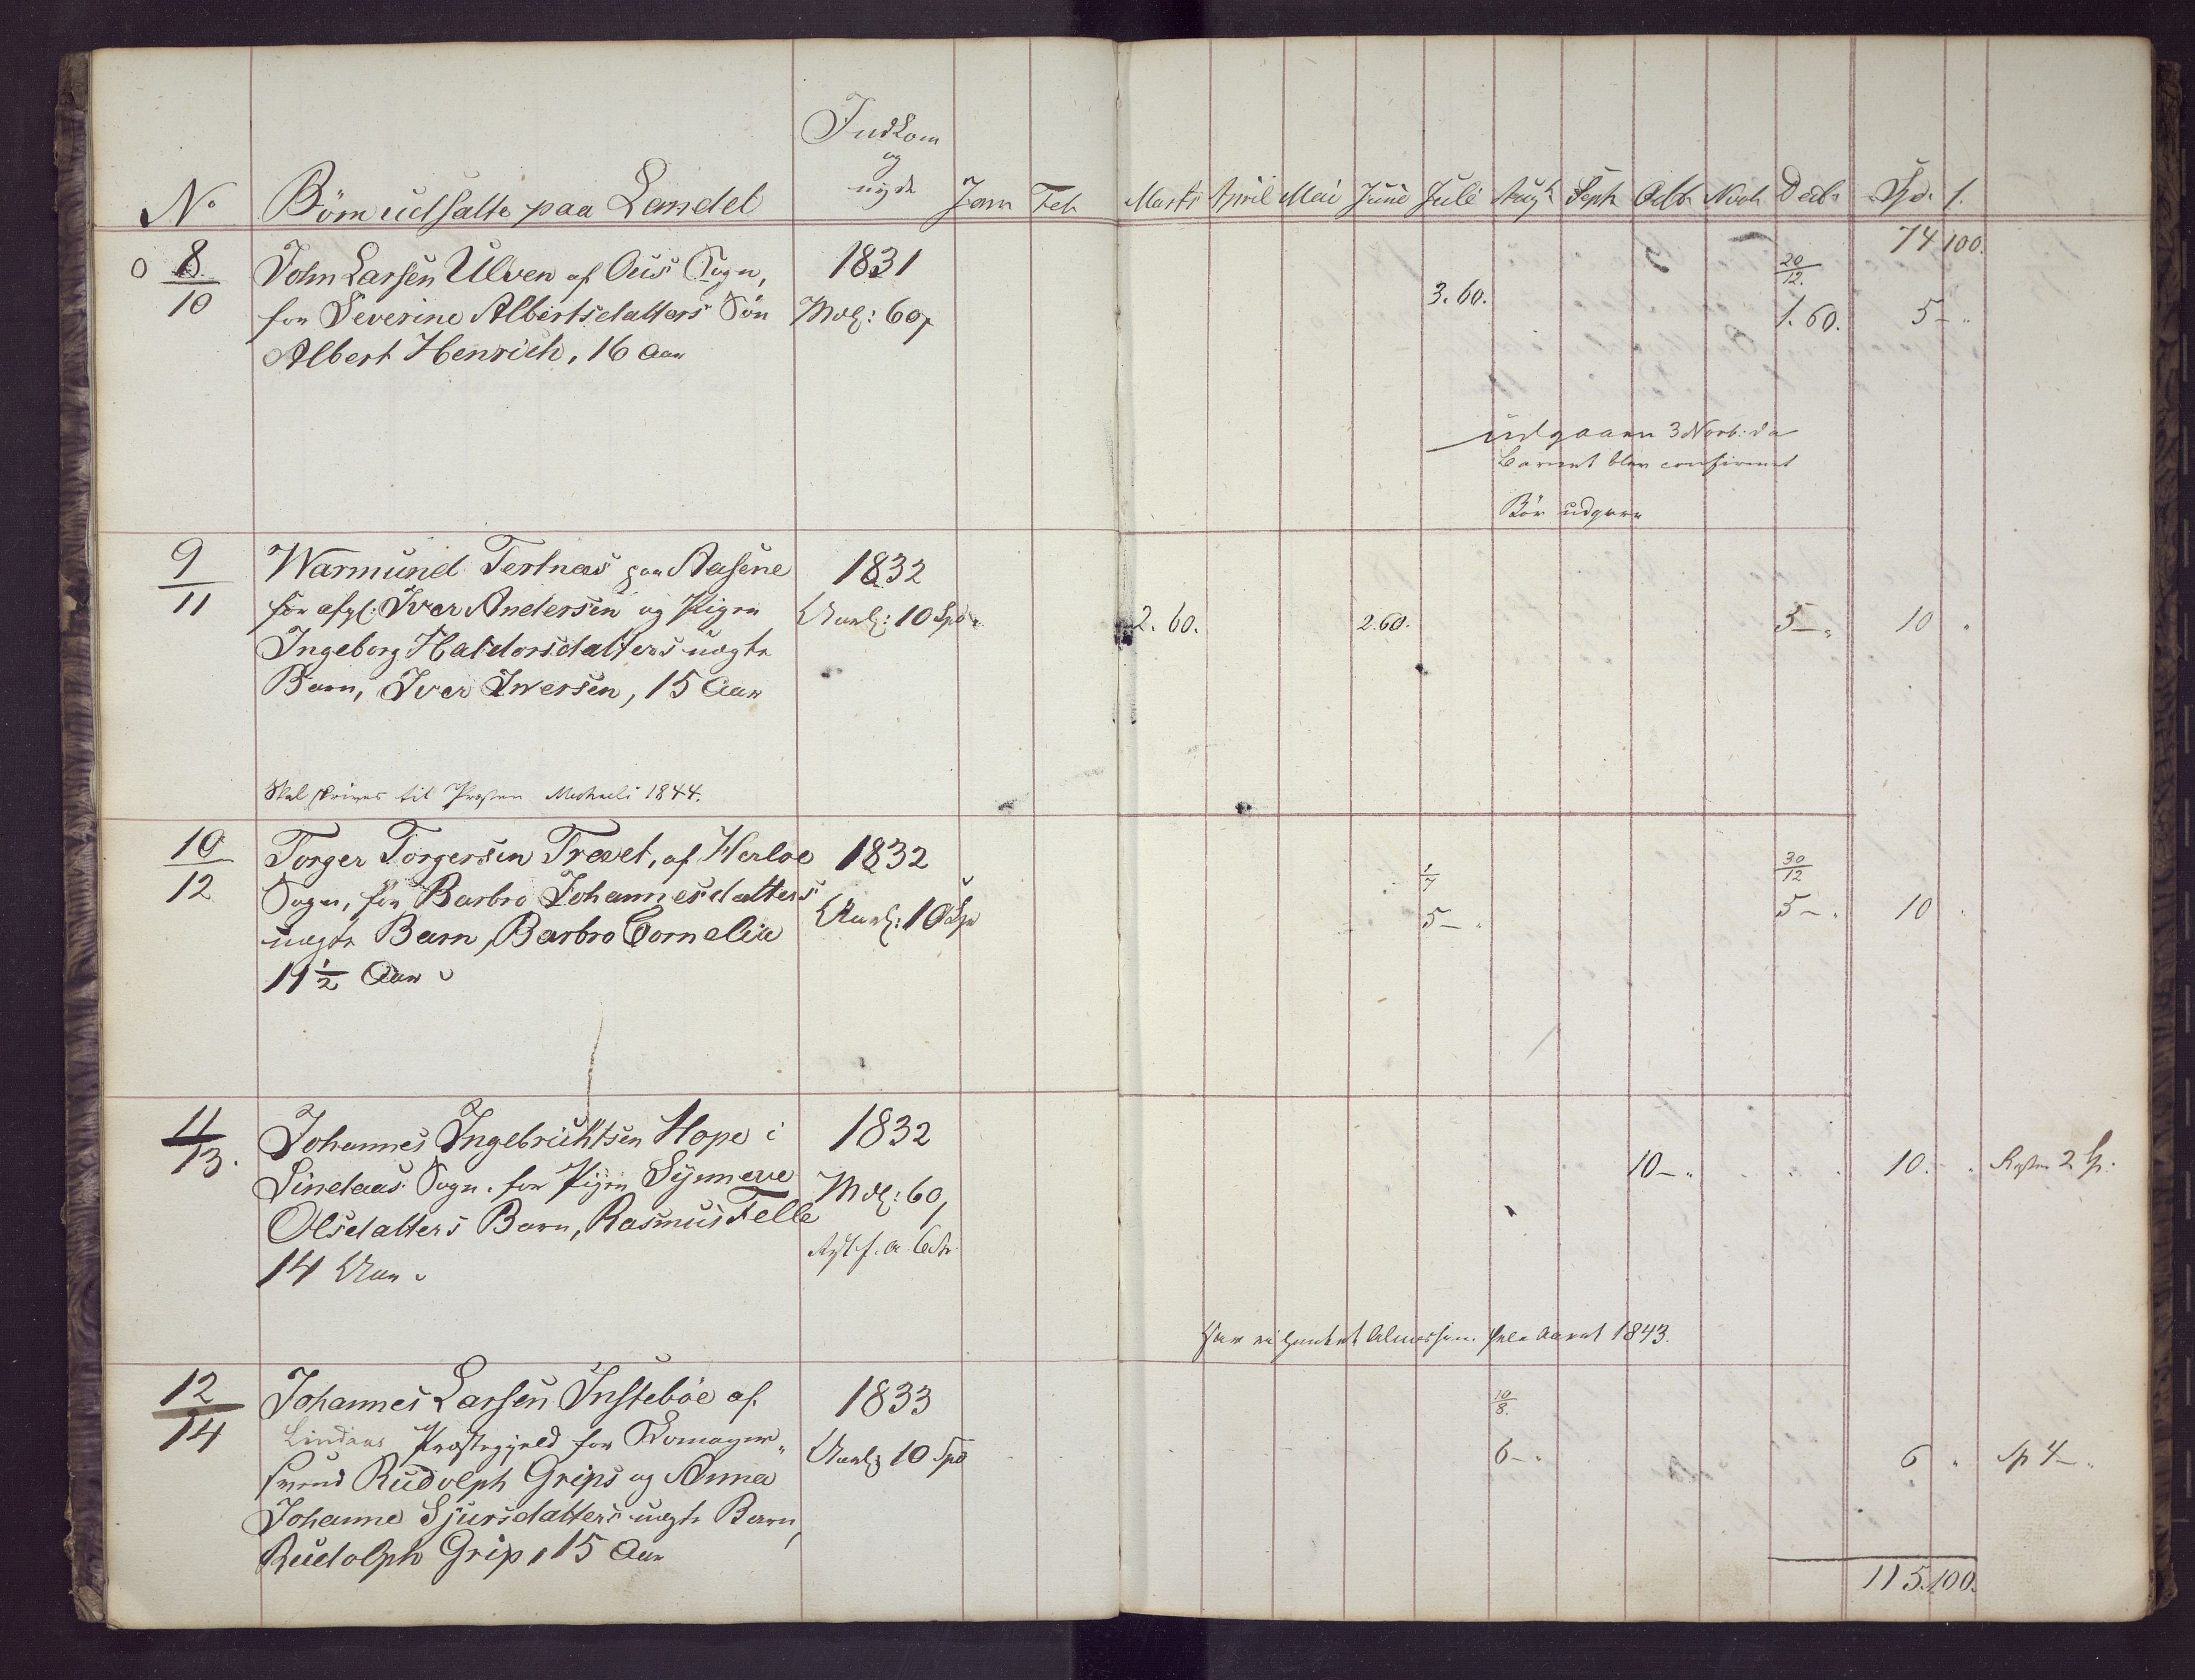 Indkom
og
nyde
No Börn udsatte paa Landet Jan Feb Marts April Mai Juni Juli Aug Septr Octb Novb Decb Spd. s.
74 100.
0 8/10 John Larsen Ulven af Ous Sogn, 1831 20/12.
for Severine Albertsdatters Sön Mdl: 60, 3. 60. 1. 60. 5 -
Albert Henrich, 16 Aar
udgaaer 3 Novb: da
Barnet blev confirmert
Bör udgaae
9/11 Warmund Tertnæs paa Aasene 1832
for afgl. Iver Andersen og Pigen Aarl: 10 Spd 2. 60. 2.60. 5 - 10 "
Ingeborg Haldorsdatters uægte
Barn, Iver Iversen, 15 Aar
Skal skrives til Præsten Michaeli 1844.
10/12 Torger Torgersen Trævet, af Herloe 1832 1/7 30/12
Sogn, for Barbro Johannesdatters Aarl: 10 Spd 5 - 5 - 10
uægte Barn, Barbro Cornelia
11 1/2 Aar
11/13. Johannes Ingebrichtsen Hope i 1832
Lindaas Sogn. for Pigen Synneve Mdl: 60, 10 - 10. Rester 2 Sp.
Olsdatters Barn, Rasmus Felle
14 Aar
Har ei hævet Almissen hele Aaret 1843.
12/14 Johannes Larsen Instebøe af 1833 10/8.
Lindaas Præstegjeld for Skomager Aarl: 10 Spd 6 - 6 " 4 -
svend Rudolph Grips og Anna
Johanne Sjursdatters uægte Barn,
Rudolph Grip, 15 Aar
115.100.